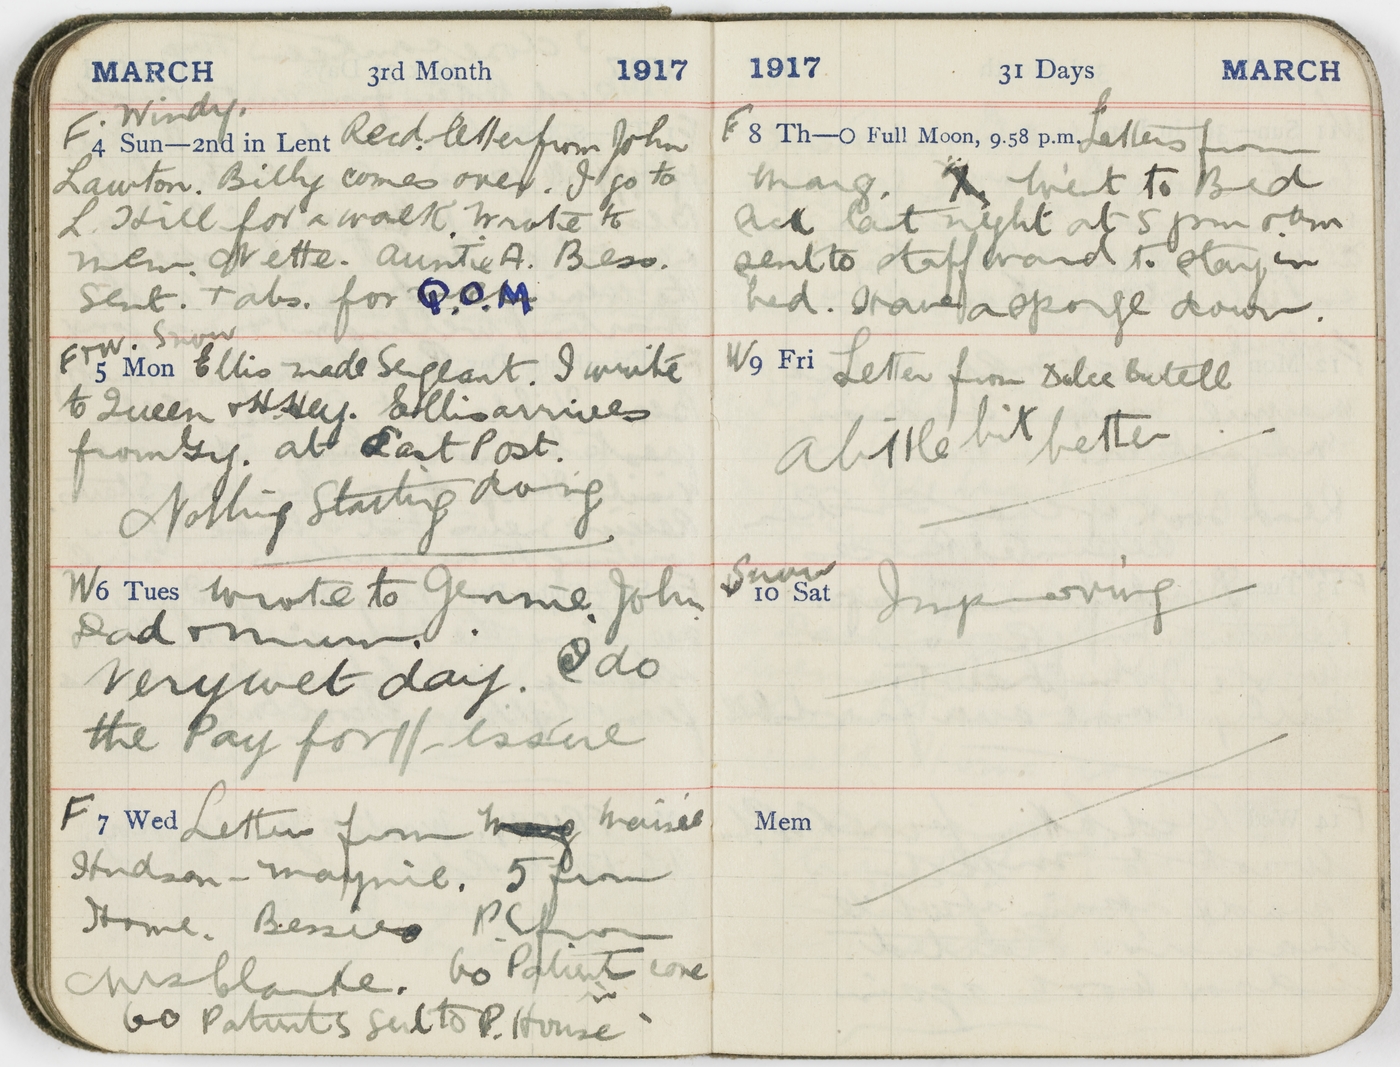 MARCH 3rd Month 1917
F. Windy.
4 Sun—2nd in Lent Recd. letter from John
Lawton. Billy comes over. I go to
L. Hill for a walk. Wrote to
mem. Nette. Auntie A. Bess.
Sent. Tabs. for Q.O.M
F & W. Snow
5 Mon Ellis made Sergeant. I write
to Queen & H.Hey. Ellis arrives
from Gy. at East Post.
Nothing Starting doing
W 6 Tues wrote to Gennie. John
Dad & mum.
Very wet day. I do
the Pay for 11/- issue
F 7 Wed Letters from Marg Maisie
Hudson - Maynie. 5 from
Home. Bessies P.C from
Mrs Blanke. 60 Patients come in
60 Patients sent to P. House
1917 31 Days MARCH
F 8 Th—O Full Moon, 9.58 p.m. Letters from
Marg. X Went to Bed
last night at 5 pm
sent to staff ward to stay in
bed. Have a sponge down.
W 9 Fri Letter from Dulce Butell
A little bit better
Snow
10 Sat Improving
Mem